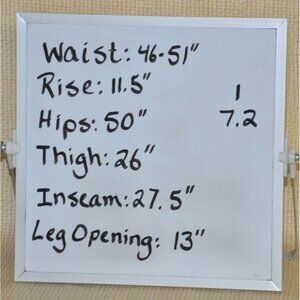 Waist: 46-51"
Rise: 11.5"
Hips: 50"
Thigh: 26"
Inseam: 27.5"
Leg Opening: 13"
1
7.2